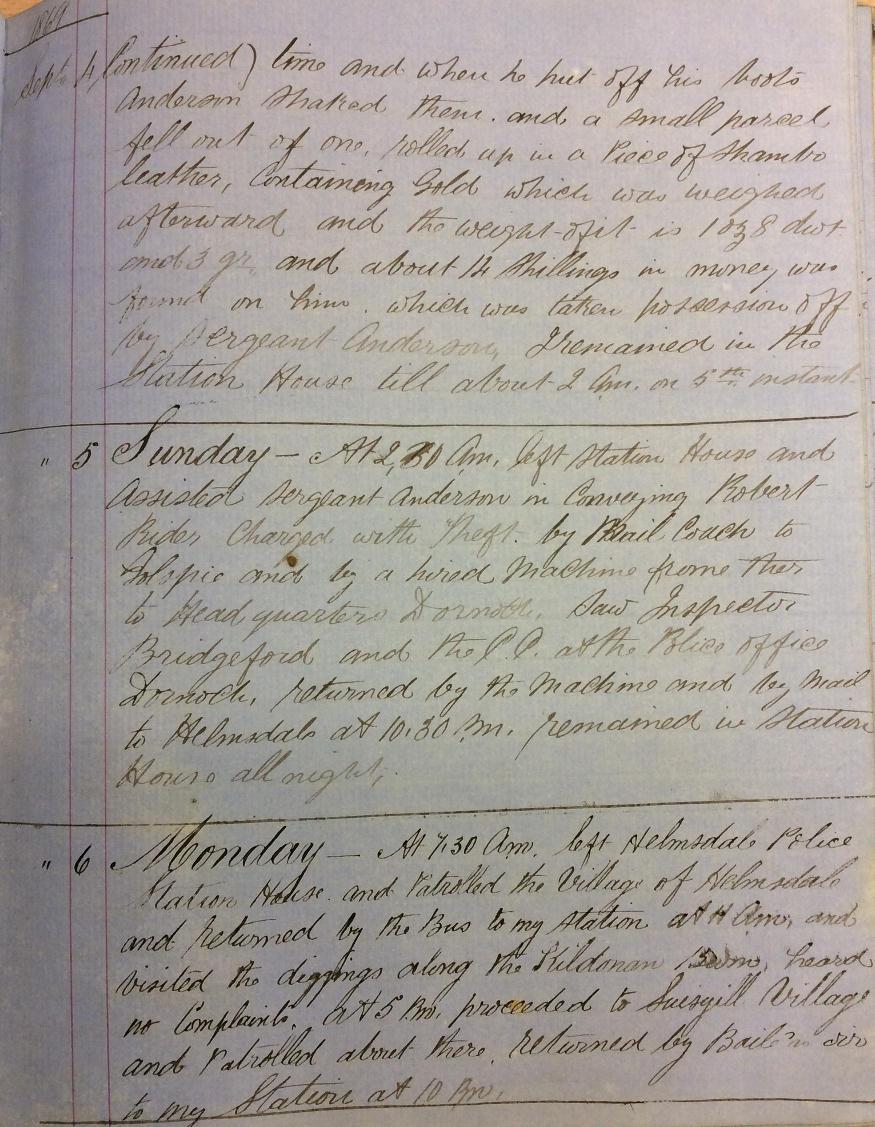 1869
Sept 4, Continued) time and when he put off his boots
Anderson Shaked them. and a small parcel
fell out of one, rolled up in a Piece of Shambo
leather, Containing Gold which was weighed
afterward and the weight of it is 1 oz 8 dwt
and 3 gr. and about 14 Shillings in money was
found on him. which was taken possession off
by Sergeant Anderson, I remained in the
Station House till about 2 Am. on 5th instant
" 5 Sunday — At 2,30 Am, left Station House and
Assisted Sergeant Anderson in Conveying Robert
Rider Charged with Theft. by Mail Coach to
Golspie and by a hired Machine frome ther
to Head quarters Dornoch. Saw Inspector
Bridgeford and the P.C. at the Police office
Dornoch, returned by the Machine and by Mail
to Helmsdale at 10.30 Pm. remained in Station
House all night,
" 6 Monday — At 7.30 Am. left Helmsdale Police
Station House. and Patrolled the Village of Helmsdale
and returned by the Bus to my Station at 11 Am, and
visited the diggings along the Kildonan heard
no Complaints. at 5 Pm. proceeded to Suisgill Village
and Patrolled about there. returned by
to my Station at 10 Pm.